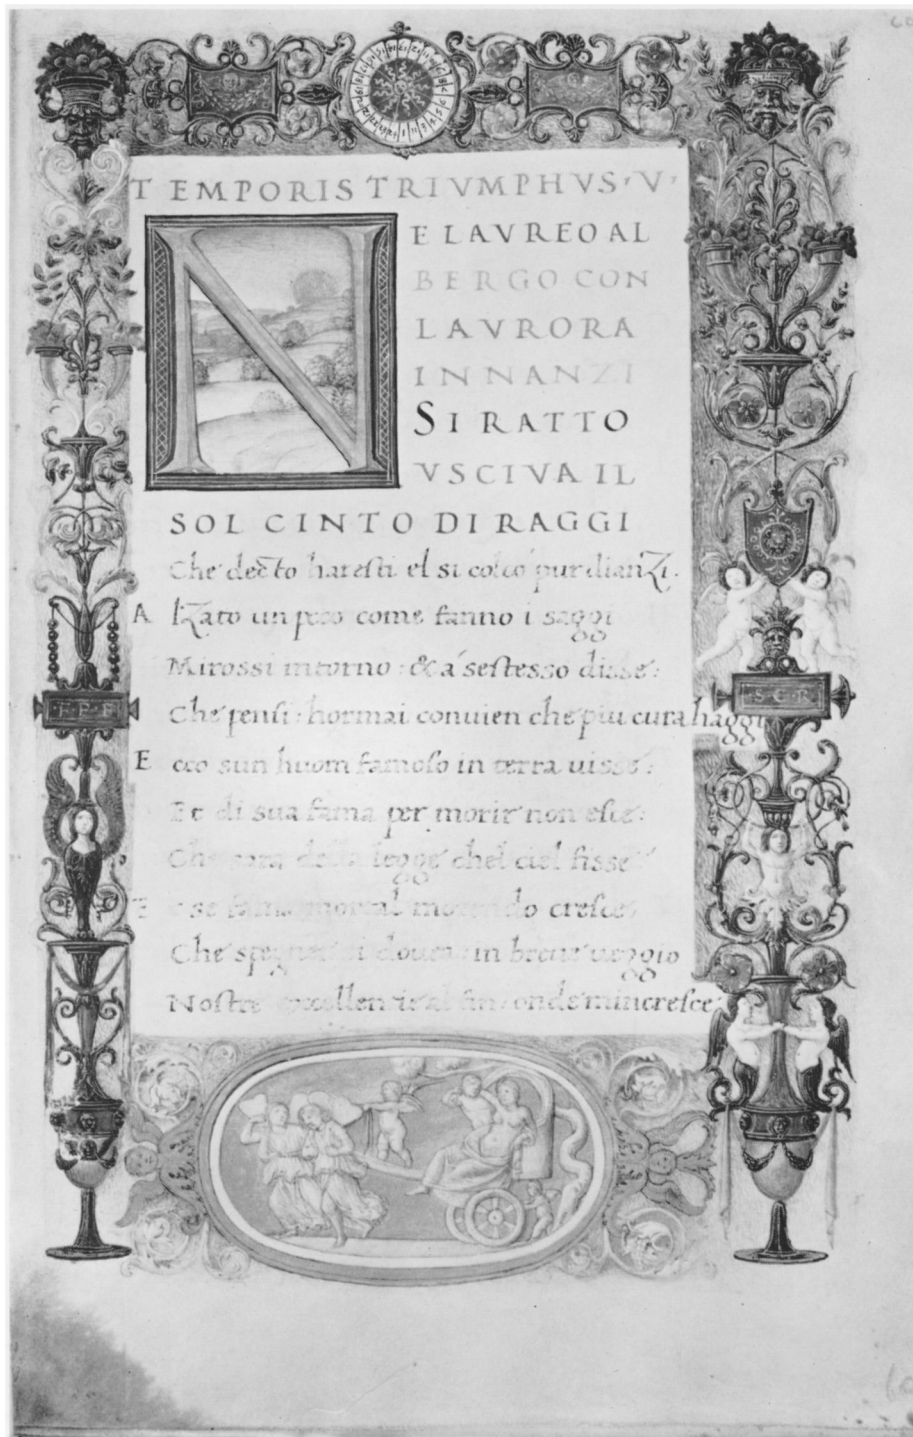 TEMPORIS TRIVMPHVS·V·
N
E L AVREO AL
BERGO CON
L AVRORA
INNANZI
SI RATTO
VSCIVA IL
SOL CINTO DI RAGGI
Che decto haresti el si colco pur dianzi.
A lzato un poco come fanno i saggi
Mirossi intorno: & a sestesso disse:
Che pensi: hormai conuien che piu cura haggi
E cco sun huom famoso in terra uisse:
Et di sua fama per morir non esce:
Che sara della legge chel ciel fisse
E se fama mortal morendo cresce
Che spegner si douea in breue ueggio
Nostre excellentie al fin: onde mincresce:
·F·P·F·
·S·C·R·